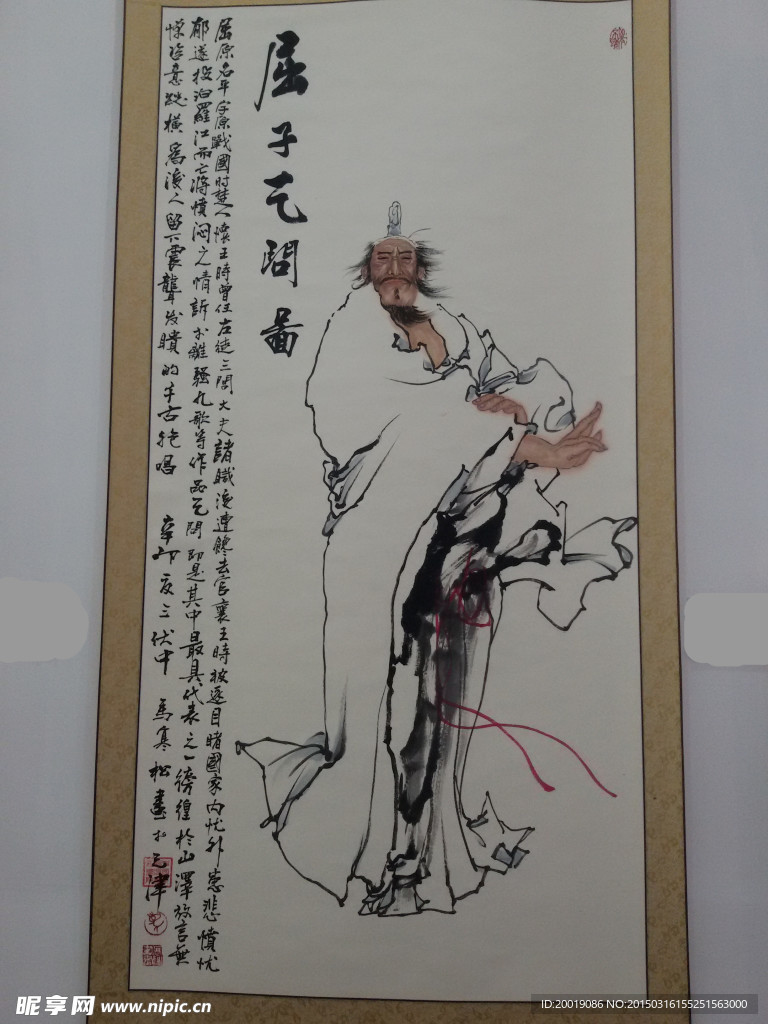 屈子天問圖
屈原名平字原戰國时楚人懷王時曾任左徒三閭大夫諸職後遭饞去官襄王時被逐目睹國家内忧外患悲憤忧
郁遂投汨羅江而亡將憤闷之情訴於離騷九歌等作品天問即是其中最具代表之一徬徨於山澤放言無
惮恣意跳横為後人留下震聾发聵的千古绝唱 辛卯夏三伏中 馬寒松畫於天津
昵享网 www.nipic.cn
ID:20019086 NO:20150316155251563000